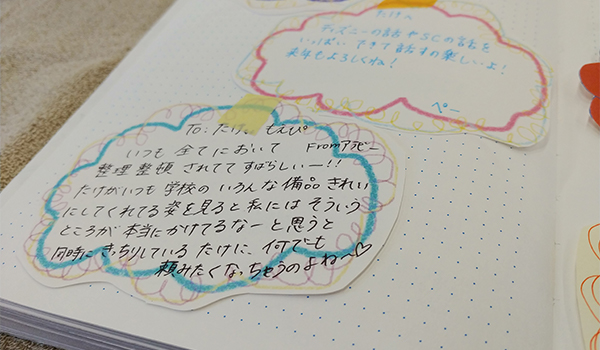 たけへ
ディズニーの話やSCの話を
いっぱいできて話すの楽しいよ!
来年もよろしくね!
ぺー
To:たけ。もえぴ
Fromアラビー
いつも全てにおいて
整理整頓されててすばらしいー!!
たけがいつも学校のいろんな備品きれい
にしてくれてる姿を見ると私にはそういう
ところが本当にかけてるなーと思うと
同時にきっちりしているたけに、何でも
頼みたくなっちゃうのよね〜♡